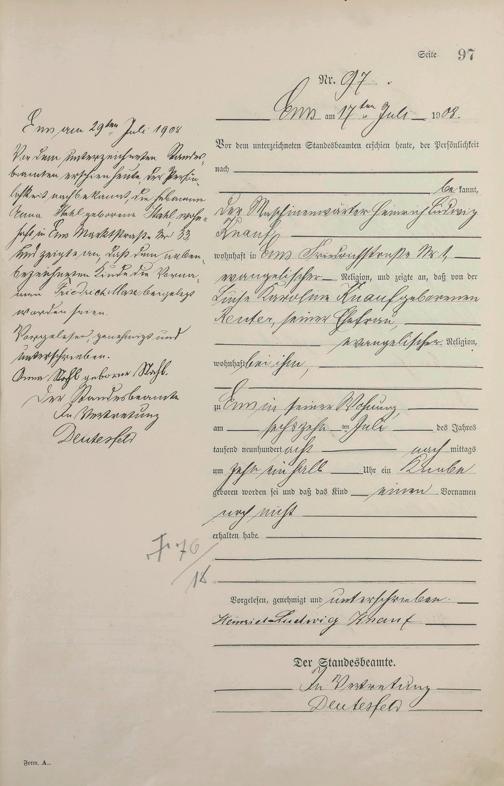 Seite 97
Nr. 97.
Ems am 17ten Juli 1908.
Vor dem unterzeichneten Standesbeamten erschien heute, der Persönlichkeit
nach
be kannt,
der Maschinenwärter Heinrich Ludwig
Knauf
wohnhaft in Ems Friedrichstraße Nr. 1,
evangelischer Religion, und zeigte an, daß von der
Luise Karoline Knauf geborenen
Reuter, seiner Ehefrau,
evangelischer Religion,
wohnhaft bei ihm,
zu Ems in seiner Wohnung,
am sechszehn ten Juli des Jahres
tausend neunhundert acht nach mittags
um zehn einhalb Uhr ein Knabe
geboren worden sei und daß das Kind einen Vornamen
noch nicht
erhalten habe.
Vorgelesen, genehmigt und unterschrieben.
Heinrich Ludwig Knauf
Der Standesbeamte.
In Vertretung
Deutesfeld
Ems am 29ten Juli 1908
Vor dem unterzeichneten Standes-
beamten erschien heute der Persön-
lichkeit nach bekannt, die Hebamme
Anna Stahl geborene Stahl wohn-
haft in Ems Marktstraße Nr 33
und zeigte an, daß dem neben-
bezeichneten Kinde die Vorna-
men Friedrich Max beigelegt
worden seien.
Vorgelesen, genehmigt und
unterschrieben.
Anna Stahl geborene Stahl.
Der Standesbeamte
In Vertretung
Deutesfeld
76
18
Form. A.